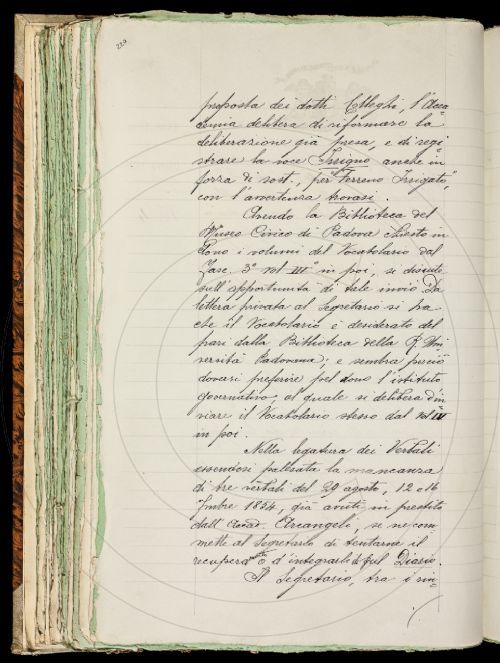 220
proposta dei dotti Colleghi, l'Acca=
demia delibera di riformare la
deliberazione già presa, e di regi=
strare la voce Irriguo anche in
forza di sost., per "Terreno Irrigato",
con l'avvertenza trovasi.
Avendo la Biblioteca del
Museo Civico di Padova chiesto in
dono i volumi del Vocabolario dal
Fasc. 3º Vol. III º in poi, si discute
sull'opportunità di tale invio. Da
lettera privata al Segretario si ha
che il Vocabolario è desiderato del
pari dalla Biblioteca della R. Uni
versità Padovana; e sembra perciò
doversi preferire pel dono l'istituto
governativo, al quale si delibera d'in
viare il Vocabolario stesso dal Vol. IV
in poi.
Nella legatura dei Verbali
essendosi palesata la mancanza
di tre verbali del 29 agosto, 12 e 16
1834, già avuti in prestito
dall' Arcangeli, se ne com
mette al Segretario di tentarne il
recupero o d'integrarli sul Diario.
Il Segretario, tra i rin=